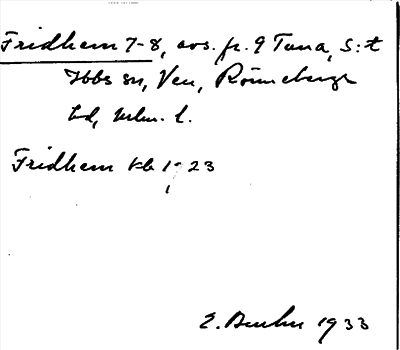 Fridhem 7-8, avs. fr. 9 Tuna, S:t
Ibbs sn, Ven, Rönnebergs
hd, Mlm. l.
Fridhem kb 1923
E. 1933